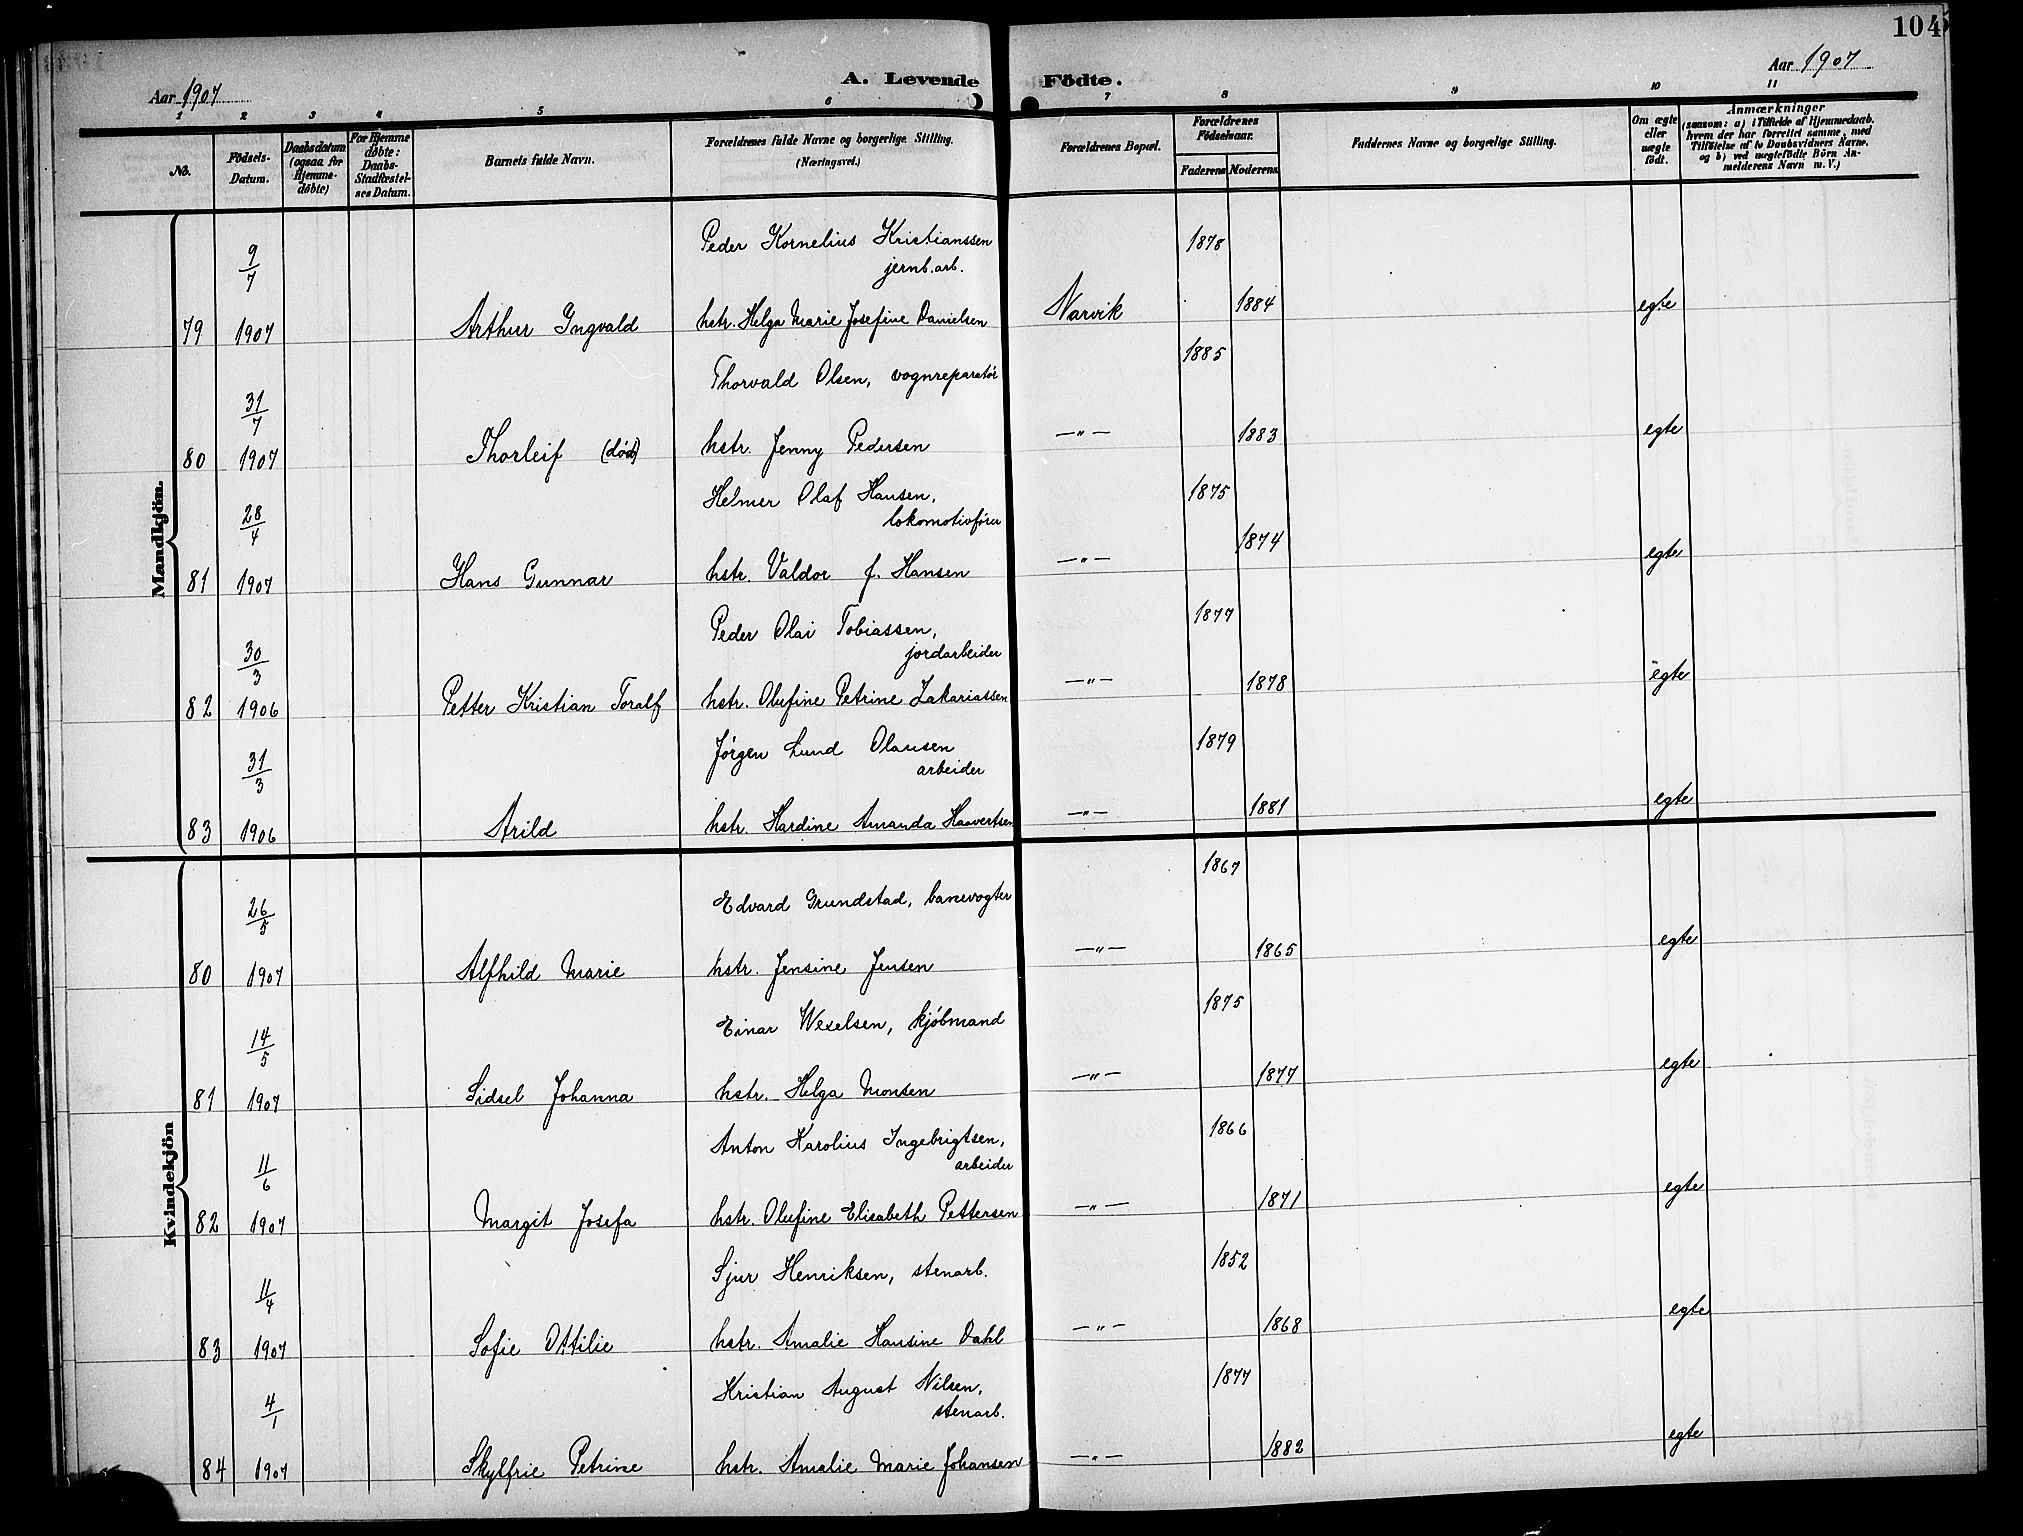 104
Aar 1907
A. Levende Födte.
Aar 1907
1 2 3 4 5 6 7 8 9 10 11
No.
Födsels-Datum.
Daabsdatum (ogsaa for Hjemme-döbte)
For Hjemme döbte: Daabs-Stadfæstel-ses Datum.
Barnets fulde Navn.
Forældrenes fulde Navne og borgerlige Stilling. (Næringsvei.)
Forældrenes Bopæl.
Forældrenes Födselsaar.
Faderens Moderens
Faddernes Navne og borgerlige Stilling.
Om ægte eller uægte födt.
Anmærkninger
(saasom: a) i Tilfælde af Hjemmedaab, hvem der har forrettet samme, med Tilföielse af to Daabsvidners Navne, og b) ved uægtefödte Börn An-melderens Navn m. V.)
Mandkjön.
9/7 Peder Kornelius Kristianssen 1878
jernb.arb.
79 1907 Arthur Ingvald hstr. Helga Marie Josefine Danielsen Narvik 1884 egte
31/7 Thorvald Olsen, vognreparatør 1885
80 1907 Thorleif (død) hstr. Jenny Pedersen —"— 1883 egte
28/4 Helmer Olaf Hansen, 1875
lokomotivfører
81 1907 Hans Gunnar hstr. Valdor f. Hansen —"— 1874 egte
30/3 Peder Olai Tobiassen, 1877
jordarbeider
82 1906 Petter Kristian Toralf hstr. Olufine Petrine Zakariassen —"— 1878 egte
31/3 Jørgen Lund Olausen 1879
arbeider
83 1906 Arild hstr. Hardine Amanda Haavertsen —"— 1881 egte
Kvindekjön
26/5 Edvard Grundstad, banevogter 1867
80 1907 Alfhild Marie hstr. Jensine Jensen —"— 1865 egte
14/5 Einar Weselsen, kjøbmand 1875
81 1907 Sidsel Johanna hstr. Helga Monsen —"— 1877 egte
11/6 Anton Karolius Ingebrigtsen, 1866
arbeider
82 1907 Margit Josefa hstr. Olufine Elisabeth Pettersen —"— 1871 egte
11/4 Sjur Henriksen, stenarb. 1852
83 1907 Sofie Ottilie hstr. Amalie Hansine Dahl —"— 1868 egte
4/1 Kristian August Nilsen, 1877
stenarb.
84 1907 Skylfrie Petrine hstr. Amalie Marie Johansen —"— 1882 egte